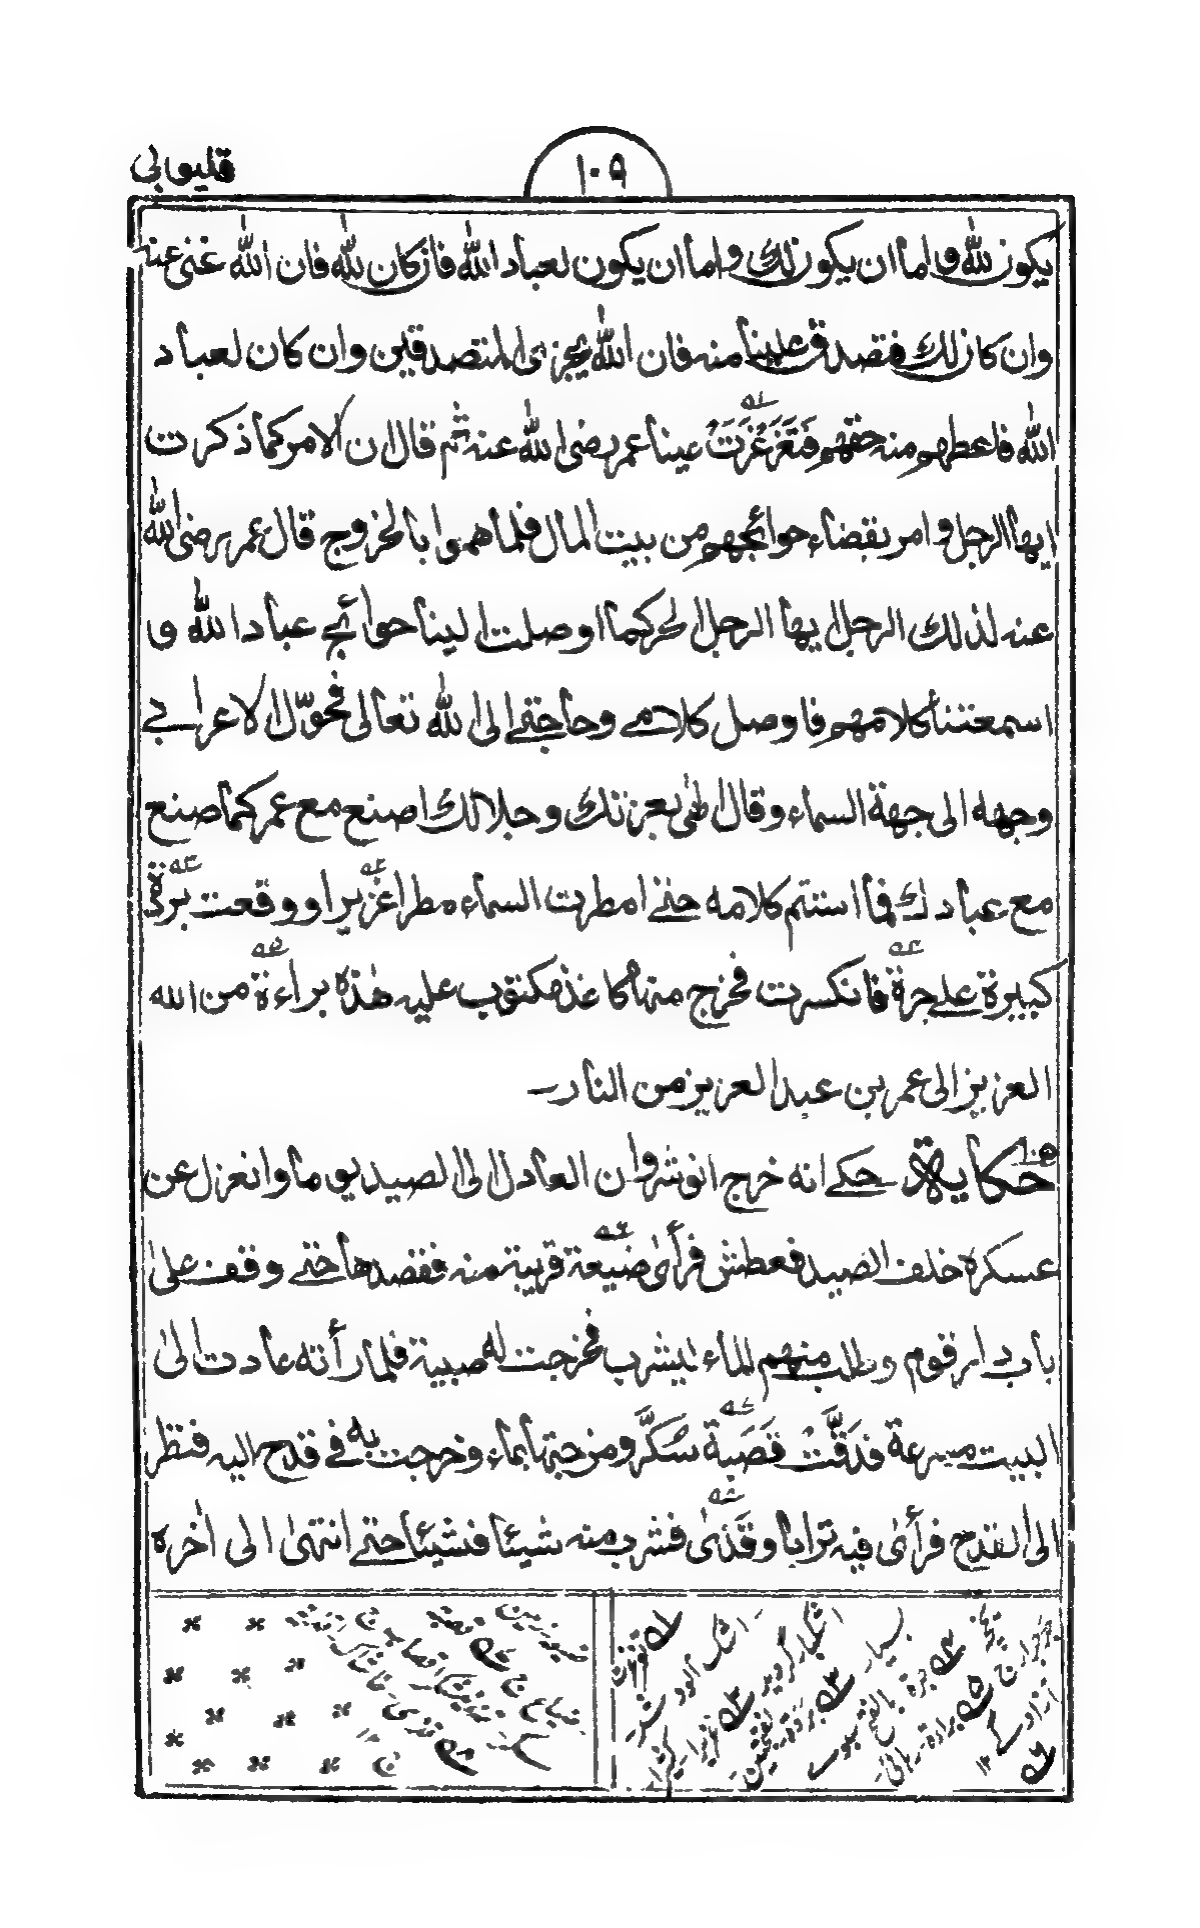 قليوبی
١٠٩
يكون لله واما ان يكون لك واما ان يكون لعباد الله فان كان لله فان الله غنى عنه
وان كان لك فتصدق علينا منه فان الله يجزى المتصدقين وان كان لعباد
الله فاعطهم منه حقهم فَتَغَرْغَرَتْ عينا عمر رضى الله عنه ثم قال ان الامر كما ذكرت
ايها الرجل وامر بقضاء حوائجهم من بيت المال فلما هموا بالخروج قال عمر رضى الله
عنه لذلك الرجل ايها الرجل الحر كما اوصلت الينا حوائج عباد الله و
اسمعتنا كلامهم فاوصل كلامے وحاجتے الى الله تعالى فحوّل الاعرابے
وجهه الى جهة السماء وقال الهى بعزتك وجلالك اصنع مع عمر كما صنع
مع عبادك فما استتم كلامه حتے امطرت السماء مطرا غزيرا ووقعت بردة
كبيرة علے جرة فانكسرت فخرج منها كاغذ مكتوب عليه هذه براءة من الله
العزيز الى عمر بن عبد العزيز من النار
حكاية حكے انه خرج انوشروان العادل الى الصيد يوما وانعزل عن
عسكره خلف الصيد فعطش فرأى ضيعة قريبة منه فقصدها حتے وقف على
باب دار قوم وطلب منهم الماء ليشرب فخرجت له صبية فلما رأته عادت الى
البيت مسرعة فدقّت قصبة سكّر ومزجتها بماء وخرجت به فے قدح اليه فنظر
الى القدح فرأى فيه ترابا وقذى فشرب منه شيئا فشيئا حتے انتهى الى اخره